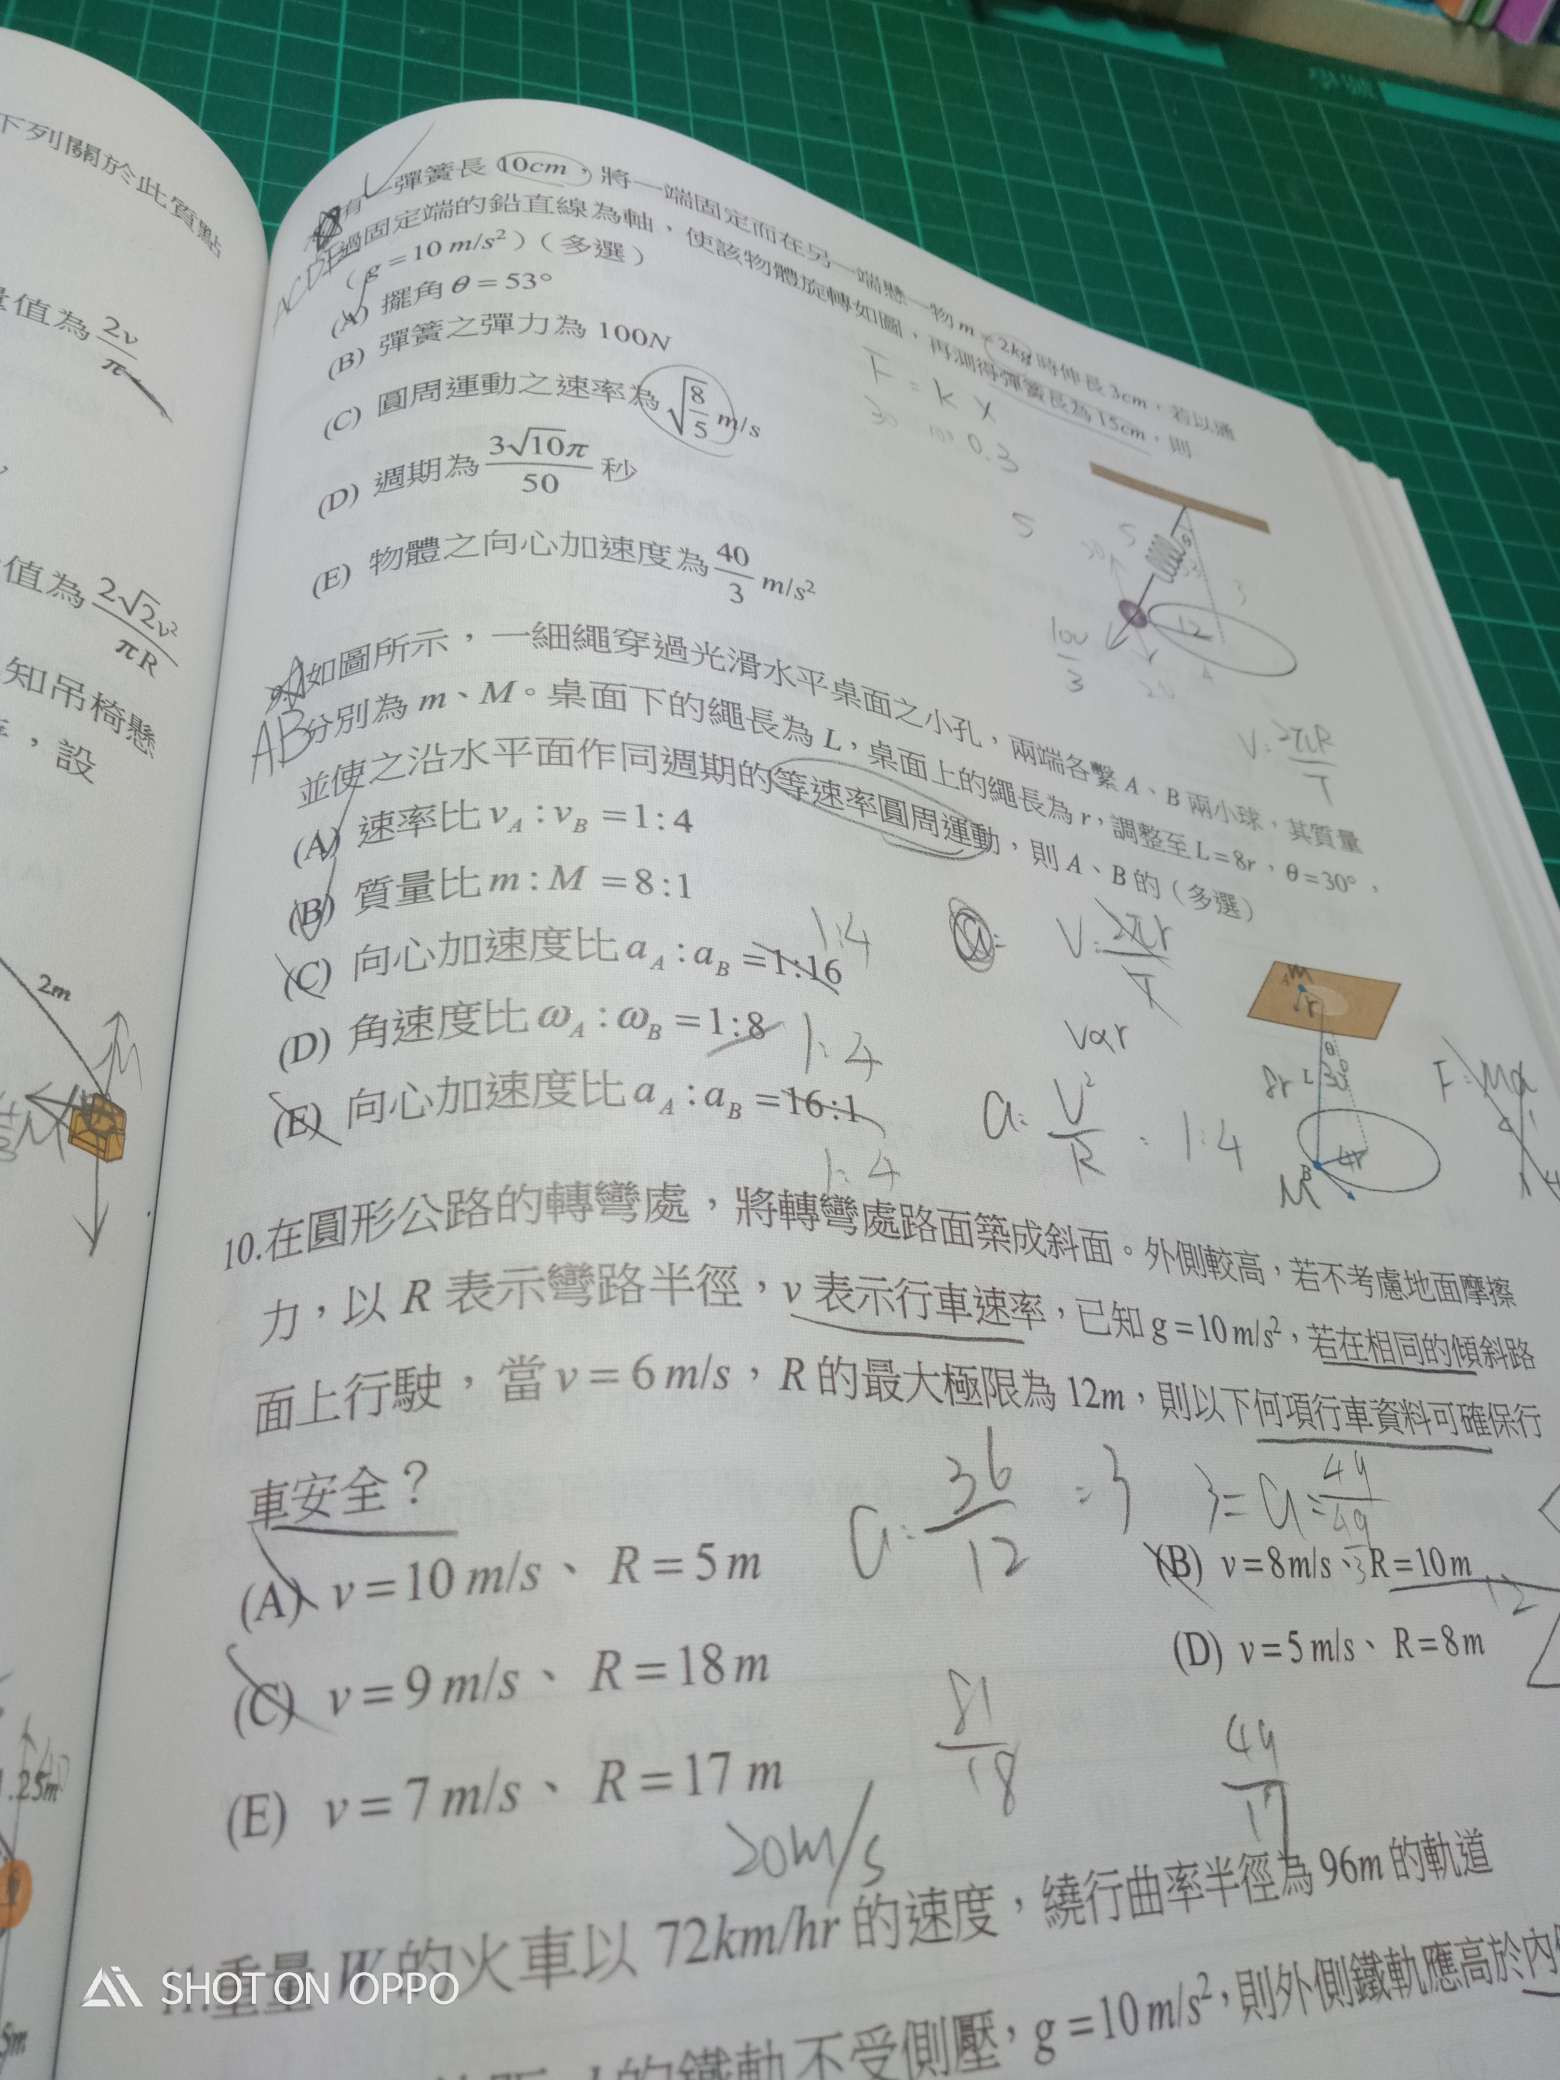 下列關於此質點
量值為 2v/π
值為 2√2v²/πR
知吊椅懸
，設
2m
.25m
5m
有一彈簧長 10cm，將一端固定而在另一端懸一物 m = 2kg 時伸長 3cm，若以通
過固定端的鉛直線為軸，使該物體旋轉如圖，再測得彈簧長為 15cm，則
（g = 10 m/s²）（多選）
ACDE
(A) 擺角 θ = 53°
(B) 彈簧之彈力為 100N
(C) 圓周運動之速率為 √(8/5) m/s
(D) 週期為 3√10π/50 秒
(E) 物體之向心加速度為 40/3 m/s²
F = k x
30
0.3
5
5
3
12
100/3
V = 2πR/T
如圖所示，一細繩穿過光滑水平桌面之小孔，兩端各繫 A、B 兩小球，其質量
AB
分別為 m、M。桌面下的繩長為 L，桌面上的繩長為 r，調整至 L = 8r，θ = 30°，
並使之沿水平面作同週期的等速率圓周運動，則 A、B 的（多選）
(A) 速率比 vA : vB = 1 : 4
(B) 質量比 m : M = 8 : 1
(C) 向心加速度比 aA : aB = 1 : 16
1:4
(D) 角速度比 ωA : ωB = 1 : 8
1:4
(E) 向心加速度比 aA : aB = 16 : 1
1:4
V = 2πr/T
V∝r
a = V²/R = 1:4
m
A
r
θ
8r
L
30°
4r
B
M
F = Ma
10.在圓形公路的轉彎處，將轉彎處路面築成斜面。外側較高，若不考慮地面摩擦
力，以 R 表示彎路半徑，v 表示行車速率，已知 g = 10 m/s²，若在相同的傾斜路
面上行駛，當 v = 6 m/s，R 的最大極限為 12m，則以下何項行車資料可確保行
車安全？
a = 36/12 = 3
3 = a =
(A) v = 10 m/s、 R = 5 m
(B) v = 8 m/s、R = 10 m
(C) v = 9 m/s、 R = 18 m
(D) v = 5 m/s、 R = 8 m
81/18
(E) v = 7 m/s、 R = 17 m
20m/s
11.重量 W 的火車以 72km/hr 的速度，繞行曲率半徑為 96m 的軌道
的鐵軌不受側壓，g = 10 m/s²，則外側鐵軌應高於內
SHOT ON OPPO